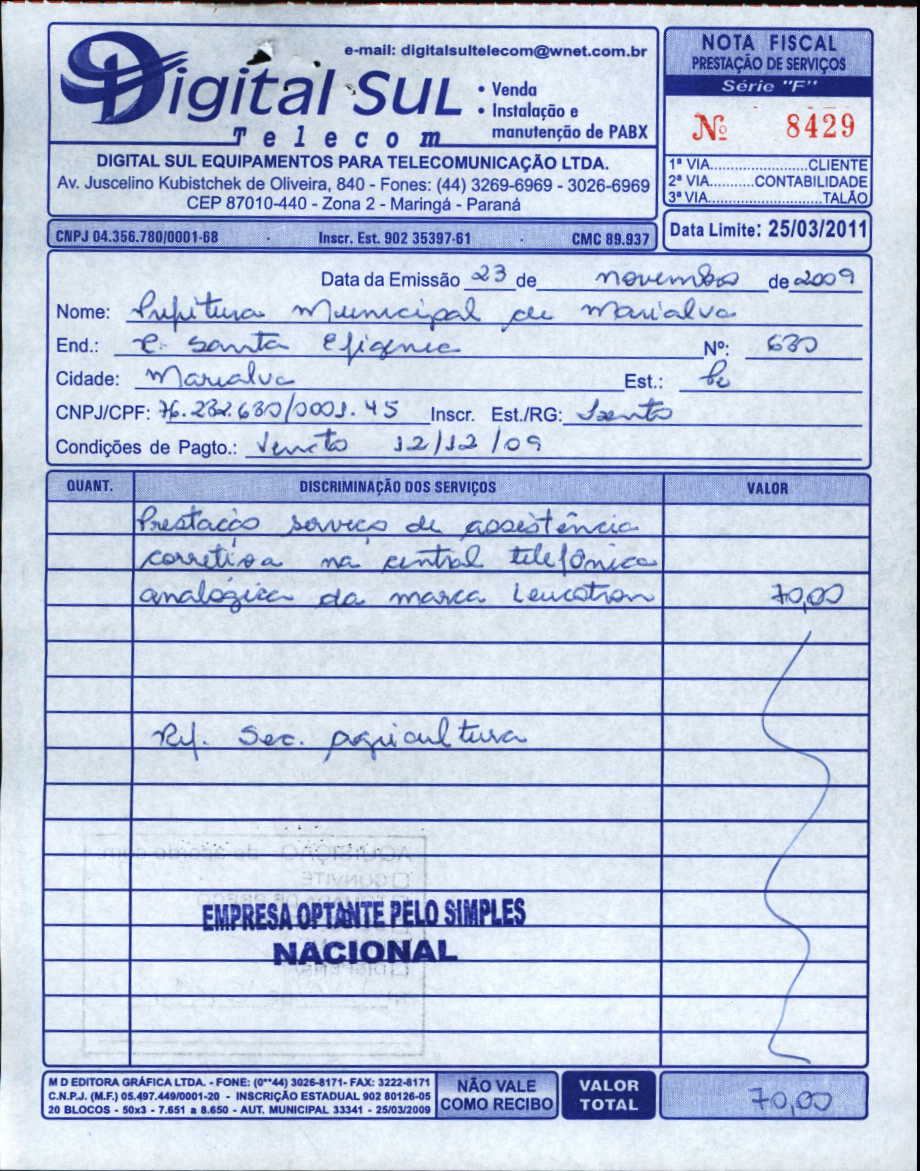 e-mail: digitalsultelecom@wnet.com.br
Digital Sul
Telecom
• Venda
• Instalação e
manutenção de PABX
DIGITAL SUL EQUIPAMENTOS PARA TELECOMUNICAÇÃO LTDA.
Av. Juscelino Kubistchek de Oliveira, 840 - Fones: (44) 3269-6969 - 3026-6969
CEP 87010-440 - Zona 2 - Maringá - Paraná
NOTA FISCAL
PRESTAÇÃO DE SERVIÇOS
Série "F"
Nº 8429
1ª VIA..................CLIENTE
2ª VIA..........CONTABILIDADE
3ª VIA.....................TALÃO
CNPJ 04.356.780/0001-68 . Inscr. Est. 902 35397-61 . CMC 89.937
Data Limite: 25/03/2011
Data da Emissão 23 de novembro de 2009
Nome: Prefitura Municipal de Marialva
End.: R. Santa Efigenia Nº: 680
Cidade: Marialva Est.:
CNPJ/CPF: 76.282.680/0001.45 Inscr. Est./RG: Isento
Condições de Pagto.: Vencto 12/12/09
QUANT. DISCRIMINAÇÃO DOS SERVIÇOS VALOR
Prestação serviço de assistência
corretiva na central telefônica
analógica da marca Leucotron 70,00
Ref. Sec. Agricultura
AQUISIÇÃO de acordo com
CONVITE
EMPRESA OPTANTE PELO SIMPLES
NACIONAL
M D EDITORA GRÁFICA LTDA. - FONE: (0**44) 3026-8171- FAX: 3222-8171
C.N.P.J. (M.F.) 05.497.449/0001-20 - INSCRIÇÃO ESTADUAL 902 80126-05
20 BLOCOS - 50x3 - 7.651 a 8.650 - AUT. MUNICIPAL 33341 - 25/03/2009
NÃO VALE
COMO RECIBO
VALOR
TOTAL
70,00